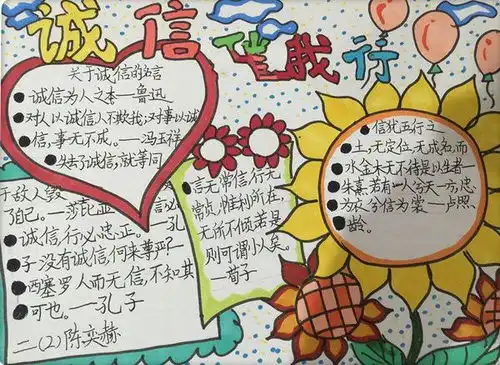 诚信伴我行
关于诚信的名言
诚信为人之本——鲁迅
对人以诚信,人不欺我;对事以诚
信,事无不成。——冯玉祥
失去了诚信,就等同
于敌人毁
了自己。——莎士
诚信,行必忠正。——孔
子没有诚信,何来尊严?——
西塞罗人而无信,不知其
可也。——孔子
二(2)陈奕赫
言无常信,行无
常贞,惟利所在,
无所不倾,若是
则可谓小人矣。
——荀子
信犹五行之
土,无定位,无成名,而
水金木无不待是以生者——
朱熹 若有一人兮天一方,忠
为衣兮信为裳——卢照
龄。